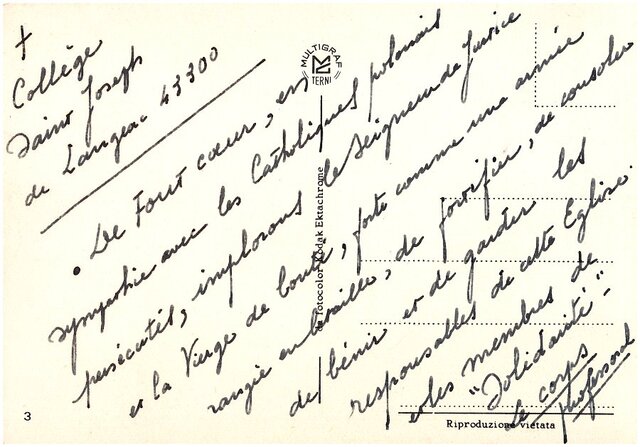 +
Collège
Saint Joseph
de Langeac 43300
• De tout cœur, en
sympathie avec les Catholiques polonais
persécutés, implorons le Seigneur de Justice
et la Vierge de bonté, forte comme une armée
rangée en bataille, de fortifier, de consoler
de bénir et de garder les
responsables de cette Eglise
et les membres de
"Solidarité" -
le corps
professoral
MULTIGRAF
TERNI
fotocolor Kodak Ektachrome
3
Riproduzione vietata